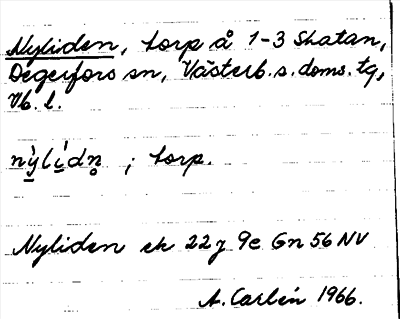 Nyliden, torp å 1-3 Skatan,
Degerfors sn, Västerb. s. doms. tg,
Vb. l.
nỳlídn̥ ; torp.
Nyliden ek 22 J 9e Gn 56 NV
A. Carlén 1966.